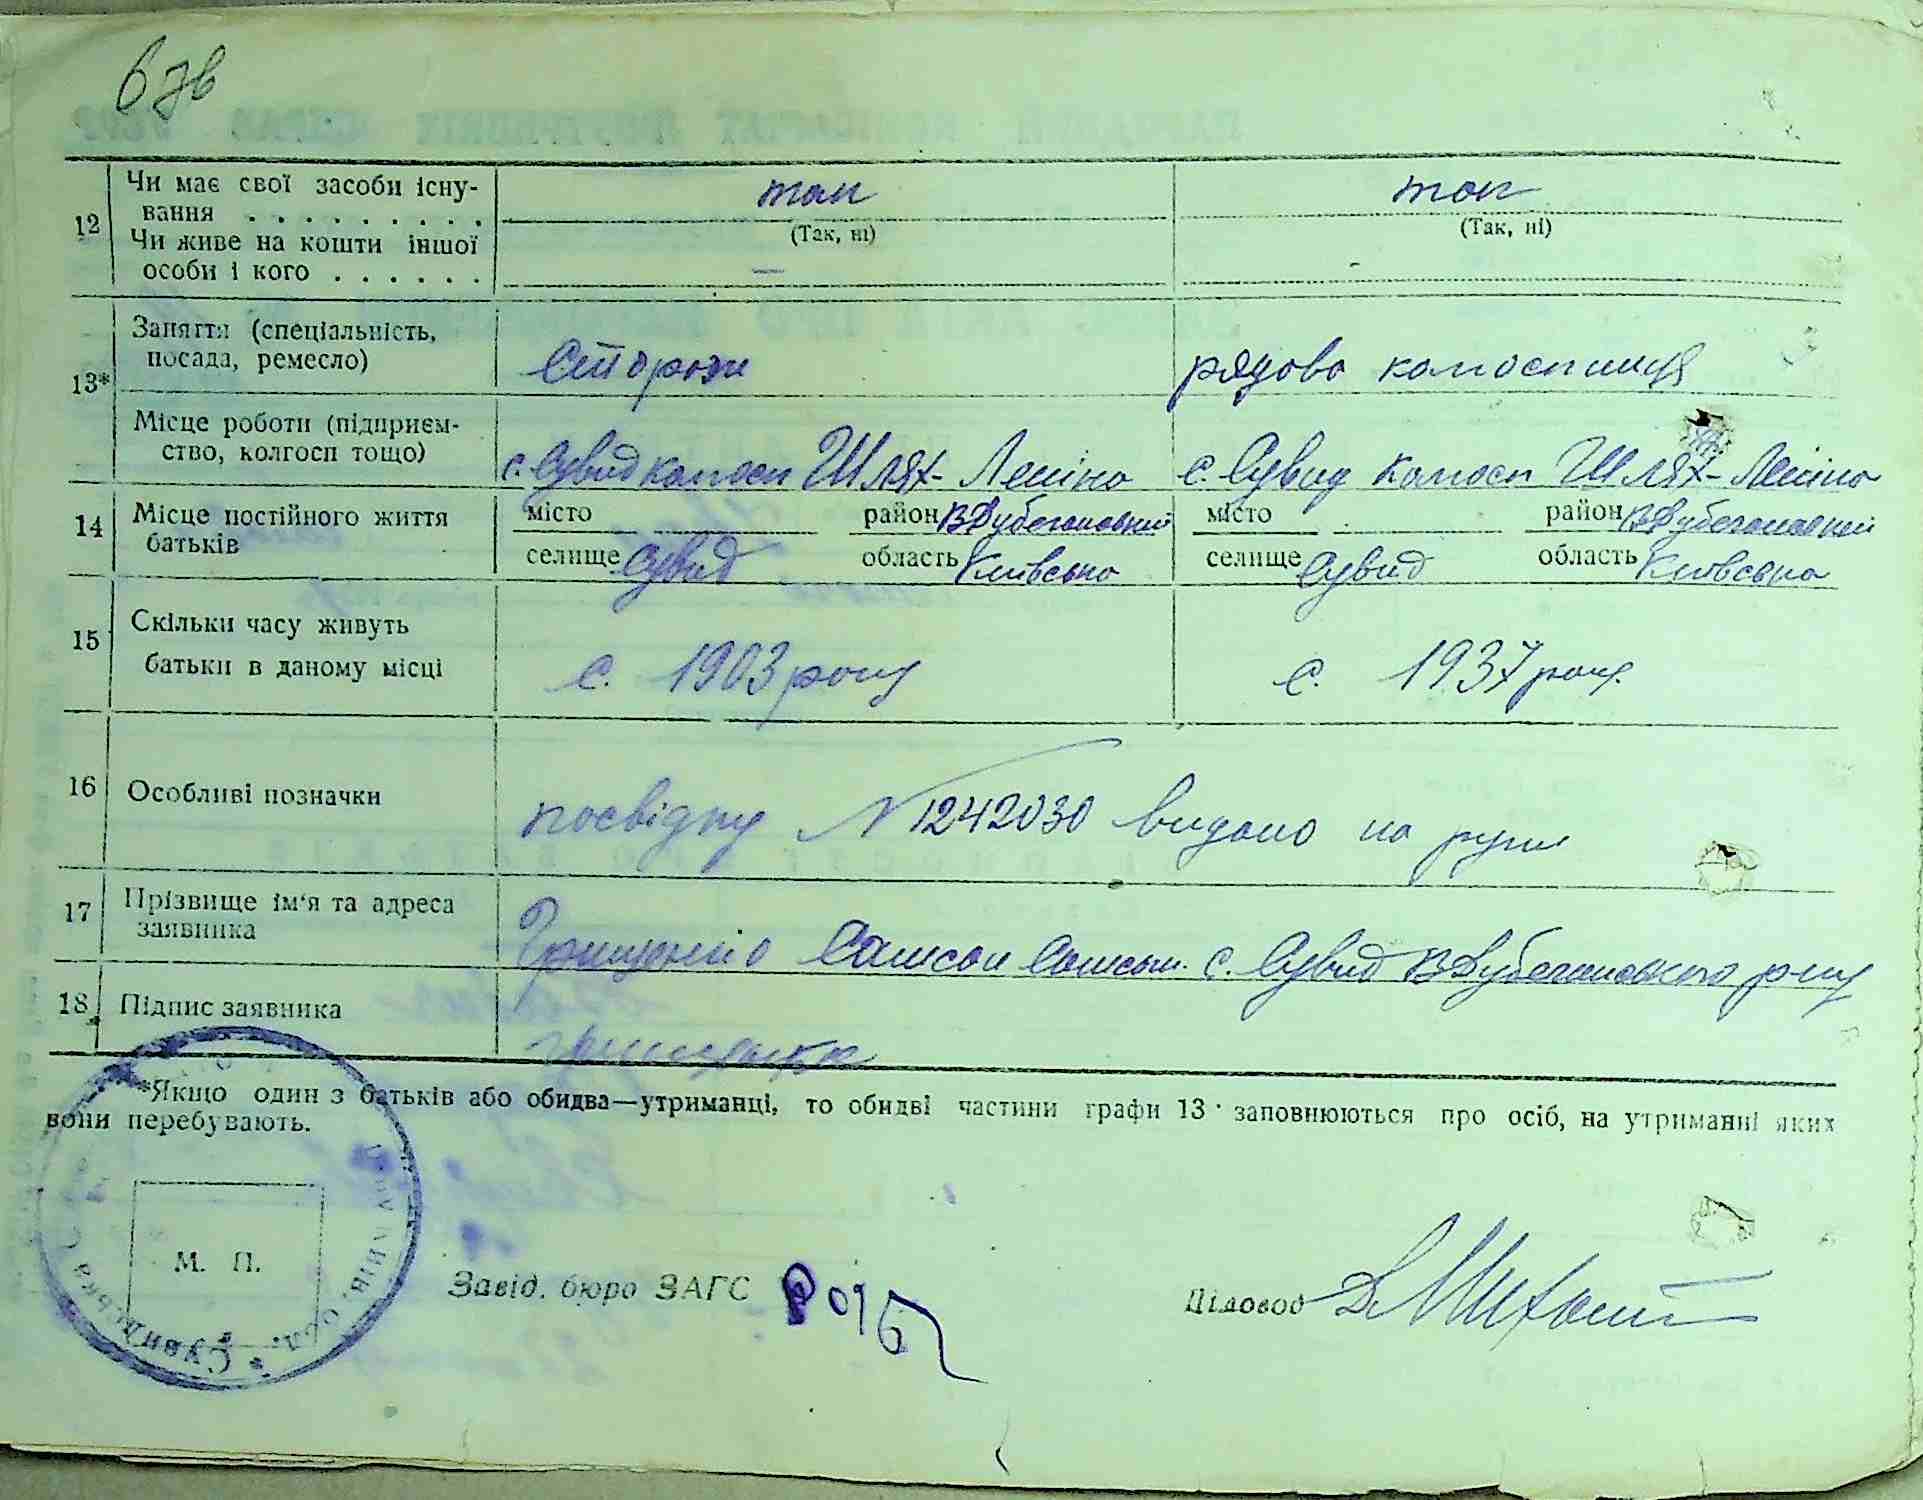 67в
12 Чи має свої засоби існу-
вання . . . . . . . . . так так
(Так, ні) (Так, ні)
Чи живе на кошти іншої
особи і кого . . . . . . —
13* Заняття (спеціальність,
посада, ремесло) Сторож рядова колоспниця
Місце роботи (підприєм-
ство, колгосп тощо) с. Сувид колосп Шлях-Леніна с. Сувид колосп Шлях-Леніна
14 Місце постійного життя
батьків
місто район В Дубечанський місто район В Дубечанський
селище Сувид область Київська селище Сувид область Київська
15 Скільки часу живуть
батьки в даному місці с. 1903 року с. 1937 року.
16 Особливі позначки посвідку № 1242030 видано на руки
17 Прізвище ім'я та адреса
заявника Грищенко Самсон с. Сувид В Дубечанського р-ну
18 Підпис заявника
*Якщо один з батьків або обидва—утриманці, то обидві частини графи 13 заповнюються про осіб, на утриманні яких
вони перебувають.
М. П.
Завід. бюро ЗАГС
Діловод
Сувидська
Київ. обл.